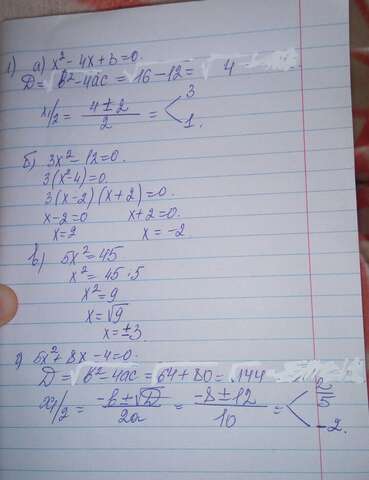 1) а) x² - 4x + 3 = 0.
D = √b² - 4ac = √16 - 12 = √4
x1/2 = 4 ± 2 / 2 = < 3 1.
б) 3x² - 12 = 0.
3(x² 4) = 0.
3(x - 2)(x + 2) = 0.
x - 2 = 0 x + 2 = 0.
x = 2 x = -2
в) 5x² = 45
x² = 45 : 5
x² = 9
x = √9
x = ±3.
г) 5x² + 8x - 4 = 0.
D = √b² - 4ac = √64 + 80 = √144
x1/2 = -b ± √D / 2a = -8 ± 12 / 10 = < 2/5 -2.